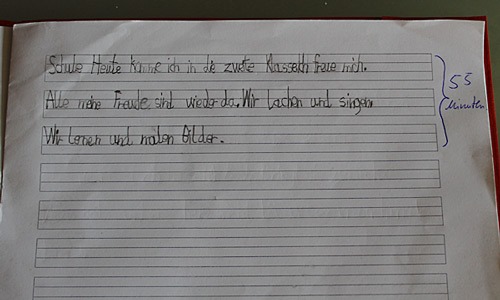 Schule Heute komme ich in die zweite Klasse Ich freue mich.
Alle meine Freude sind wieder da. Wir lachen und singen.
Wir lernen und malen Bilder.
55
Minuten